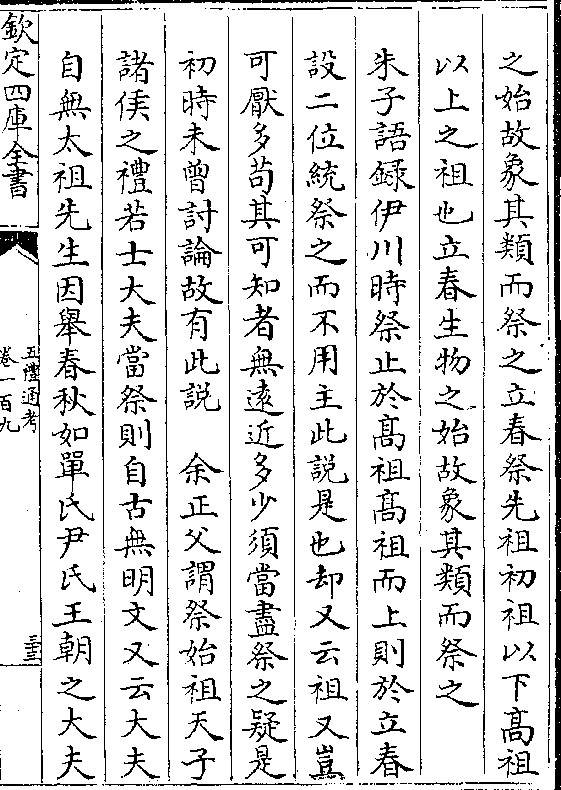 之始故象其類而祭之立春祭先祖初祖以下髙祖
以上之祖也立春生物之始故象其類而祭之
朱子語録伊川時祭止於髙祖髙祖而上則於立春
設二位統祭之而不用主此説是也却又云祖又豈
可厭多苟其可知者無逺近多少須當盡祭之疑是
初時未曾討論故有此説　余正父謂祭始祖天子
諸侯之禮若士大夫當祭則自古無明文又云大夫
自無太祖先生因舉春秋如單氏尹氏王朝之大夫
欽定四庫全書
五禮通考
卷一百九
三三